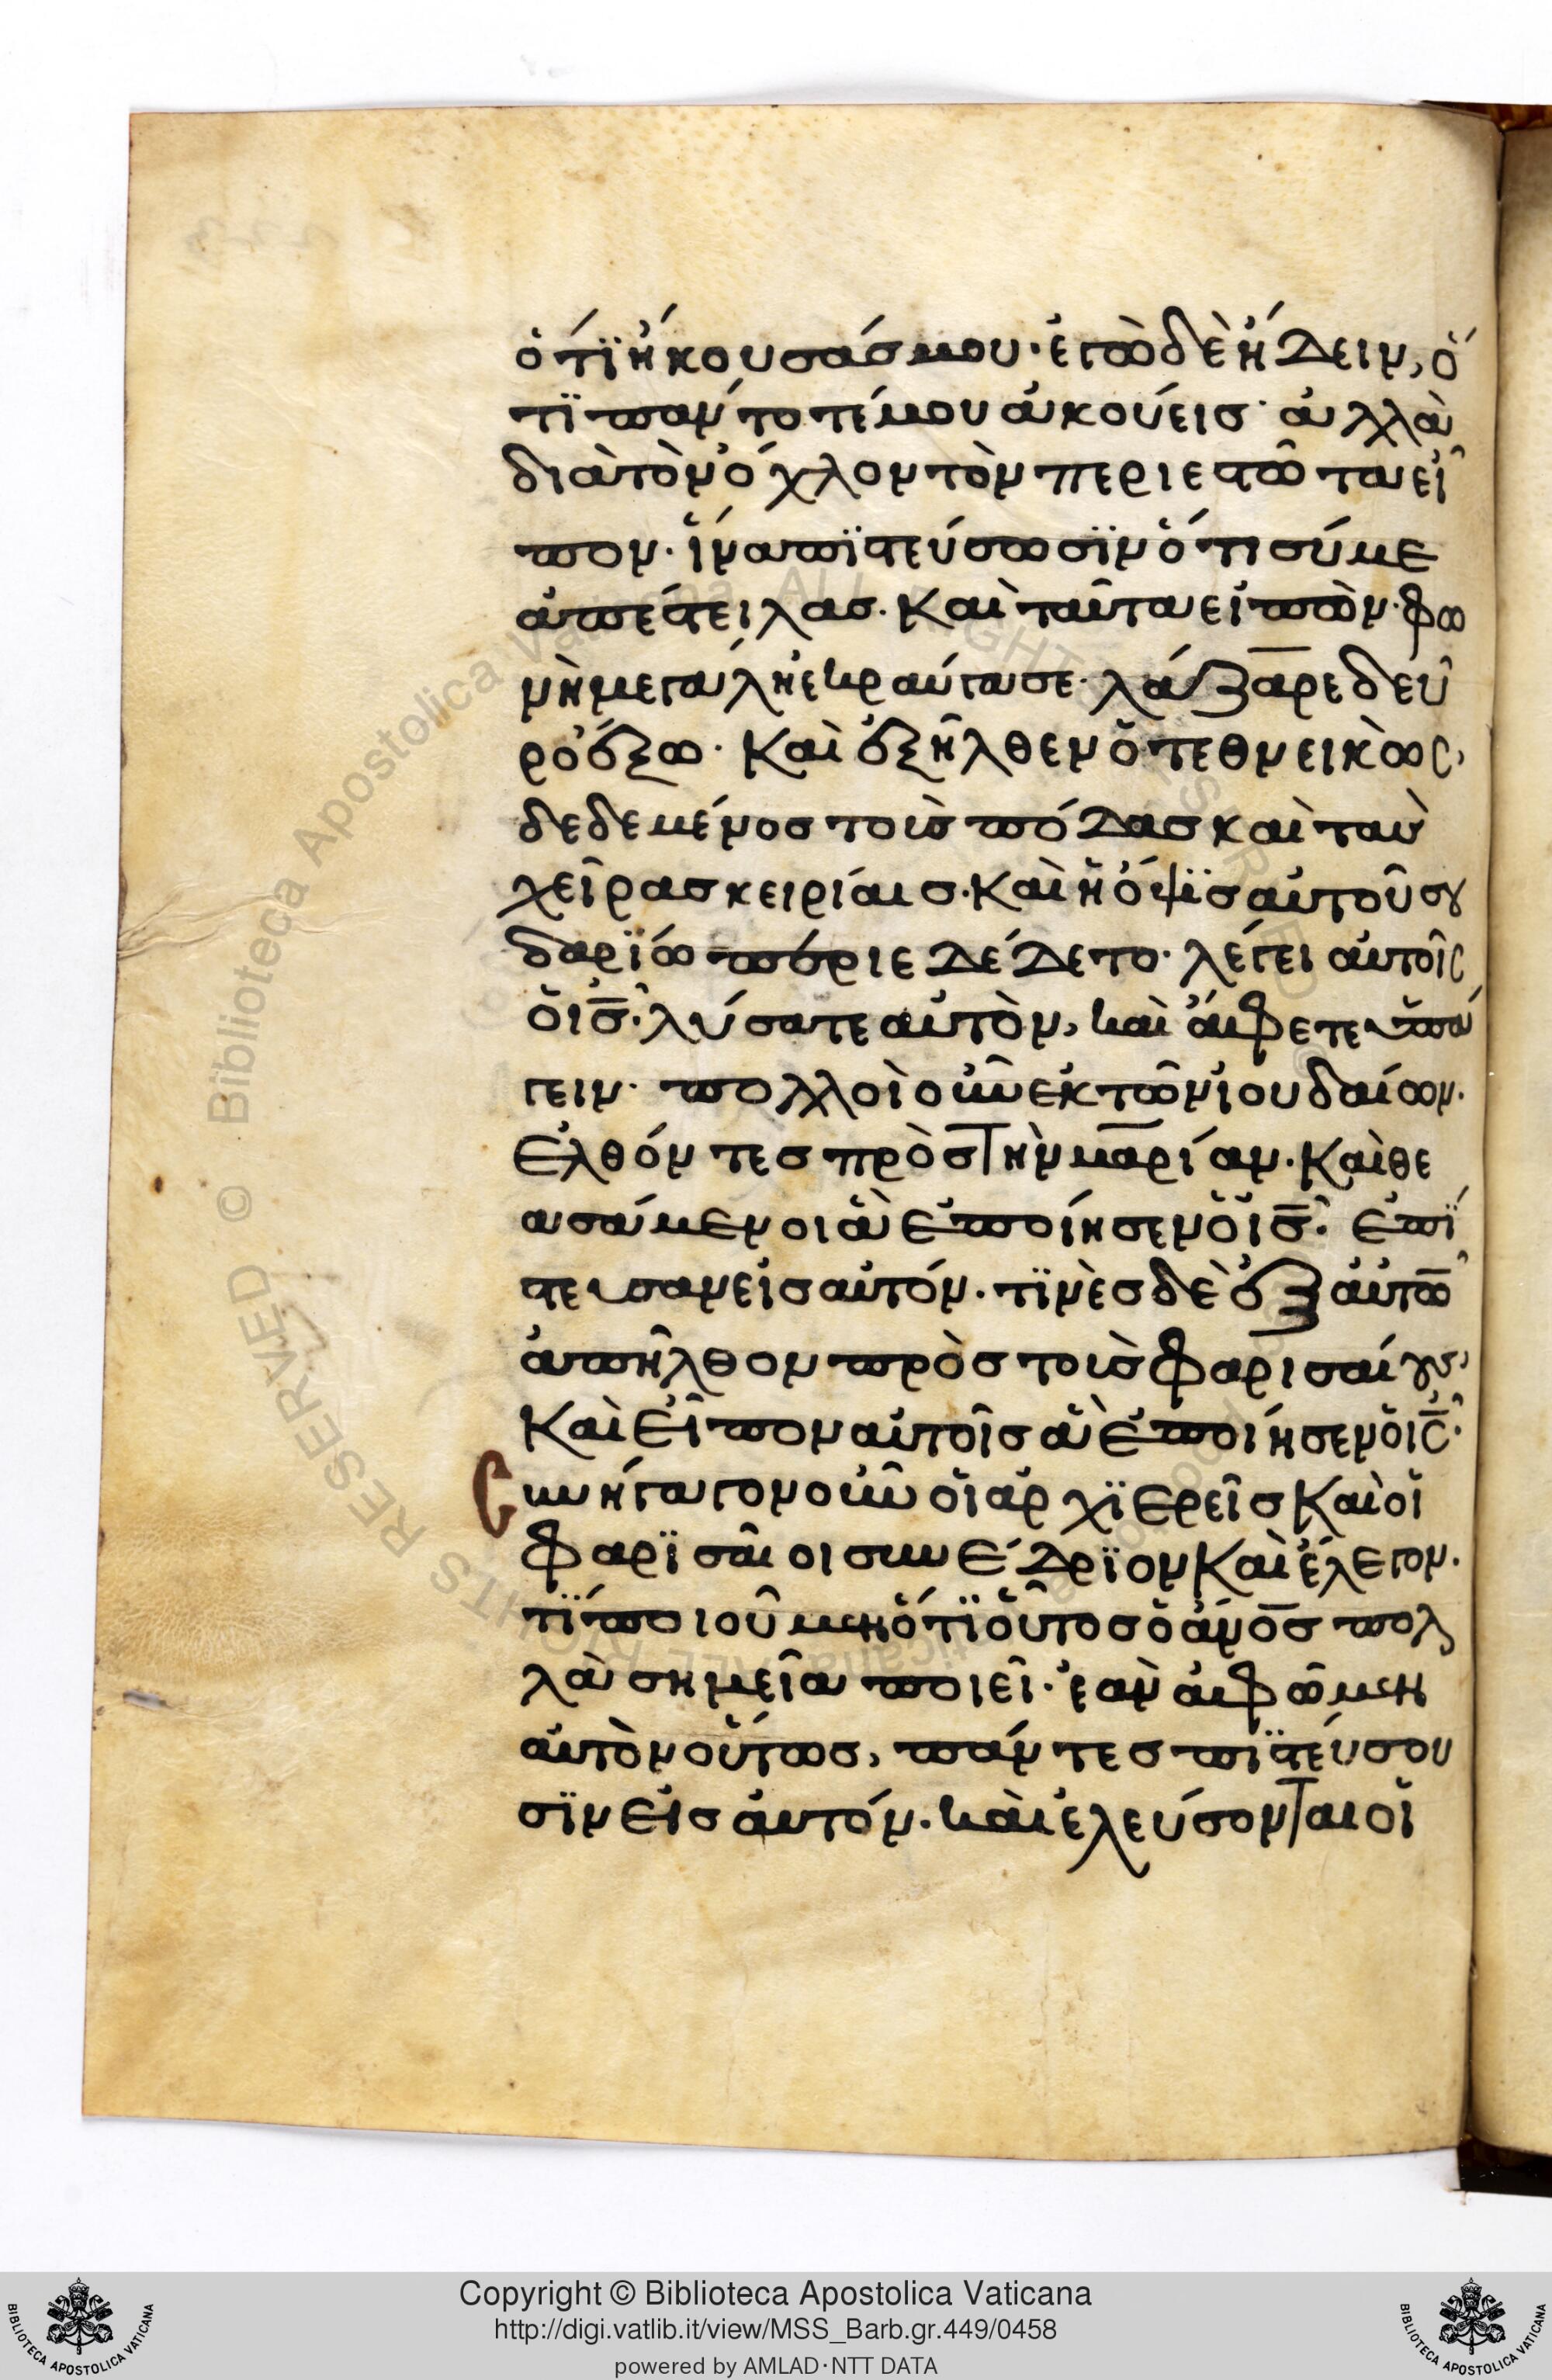 ὅτϊ ἤκουσάσ μου· ἐγὼ δὲ ἤδειν, ὅ
τϊ πάντοτέ μου ἀκούεισ· ἀλλὰ
διὰ τὸν ὄχλον τὸν περιεστῶτα εἶ
πον· ἵνα πϊστεύσωσϊν ὅτι σύ με
ἀπέστειλασ. Καὶ ταῦτα εἰπὼν· φω
νὴ μεγάλη ἐκραύγασε· λάζαρε δεῦ
ρο ἔξω· Καὶ ἐξῆλθεν ὁ τεθνεικὼς,
δεδεμένοσ τοὺσ πόδασ καὶ τὰσ
χεῖρασ κειρίαισ. Καὶ ἡ ὄψϊσ αὐτοῦ σου
δαρϊω περιεδέδετο· λέγει αὐτοῖς
ὁ ισ̅· λύσατε αὐτὸν, καὶ ἄφετε ὑπά
γειν· πολλοὶ οὖν ἐκ τῶν ἰουδαίων.
Ἐλθόντεσ πρὸσ τὴν μαρίαν. Καὶ θε
ασάμενοι ἃ ἐποίησεν ὁ ισ̅· ἐπί
στευσαν εἰσ αὐτόν. τϊνὲσ δὲ ἐξ αὐτῶ̅
ἀπῆλθον πρὸσ τοὺσ φαρισαίουσ,
Καὶ εἶπον αὐτοῖσ ἃ ἐποίησεν ὁ ις̅·
Συνήγαγον οὖν οἱ ἀρχϊερεῖσ Καὶ οἱ
φαρϊσαῖοι συνέδρϊον Καὶ ἔλεγον.
τί ποιοῦμεν ὅτϊ οὗτοσ ὁ ἀν̅οσ πολ
λὰ σημεῖα ποιεῖ· ἐὰν ἀφῶμεν
αὐτὸν οὕτωσ, πάντεσ πϊστεύσου
σϊν εἰσ αὐτόν. καὶ ἐλεύσονται οἱ
Copyright © Biblioteca Apostolica Vaticana
http://digi.vatlib.it/view/MSS_Barb.gr.449/0458
powered by AMLAD·NTT DATA
BIBLIOTECA APOSTOLICA VATICANA
BIBLIOTECA APOSTOLICA VATICANA